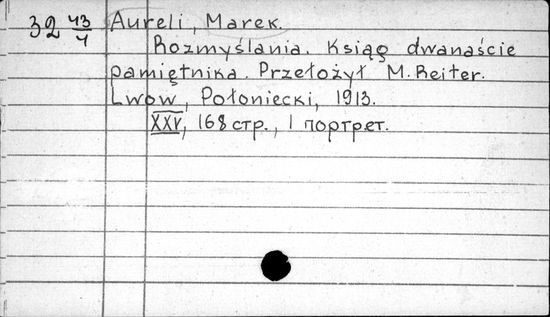 32 43/4 Aureli, Marek.
Rozmyślania. Ksiąg dwanaście
pamiętnika. Przełożył M. Reiter.
Lwow, Połoniecki, 1913.
XXV, 168 стр., 1 портрет.